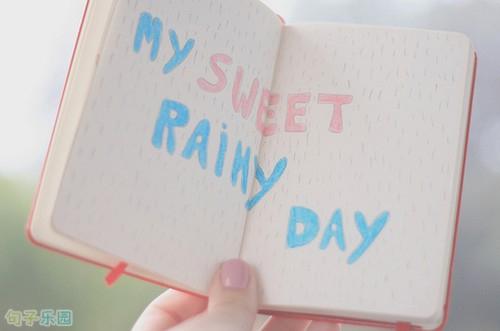 MY
SWEET
RAiNy
DAY
句子乐园